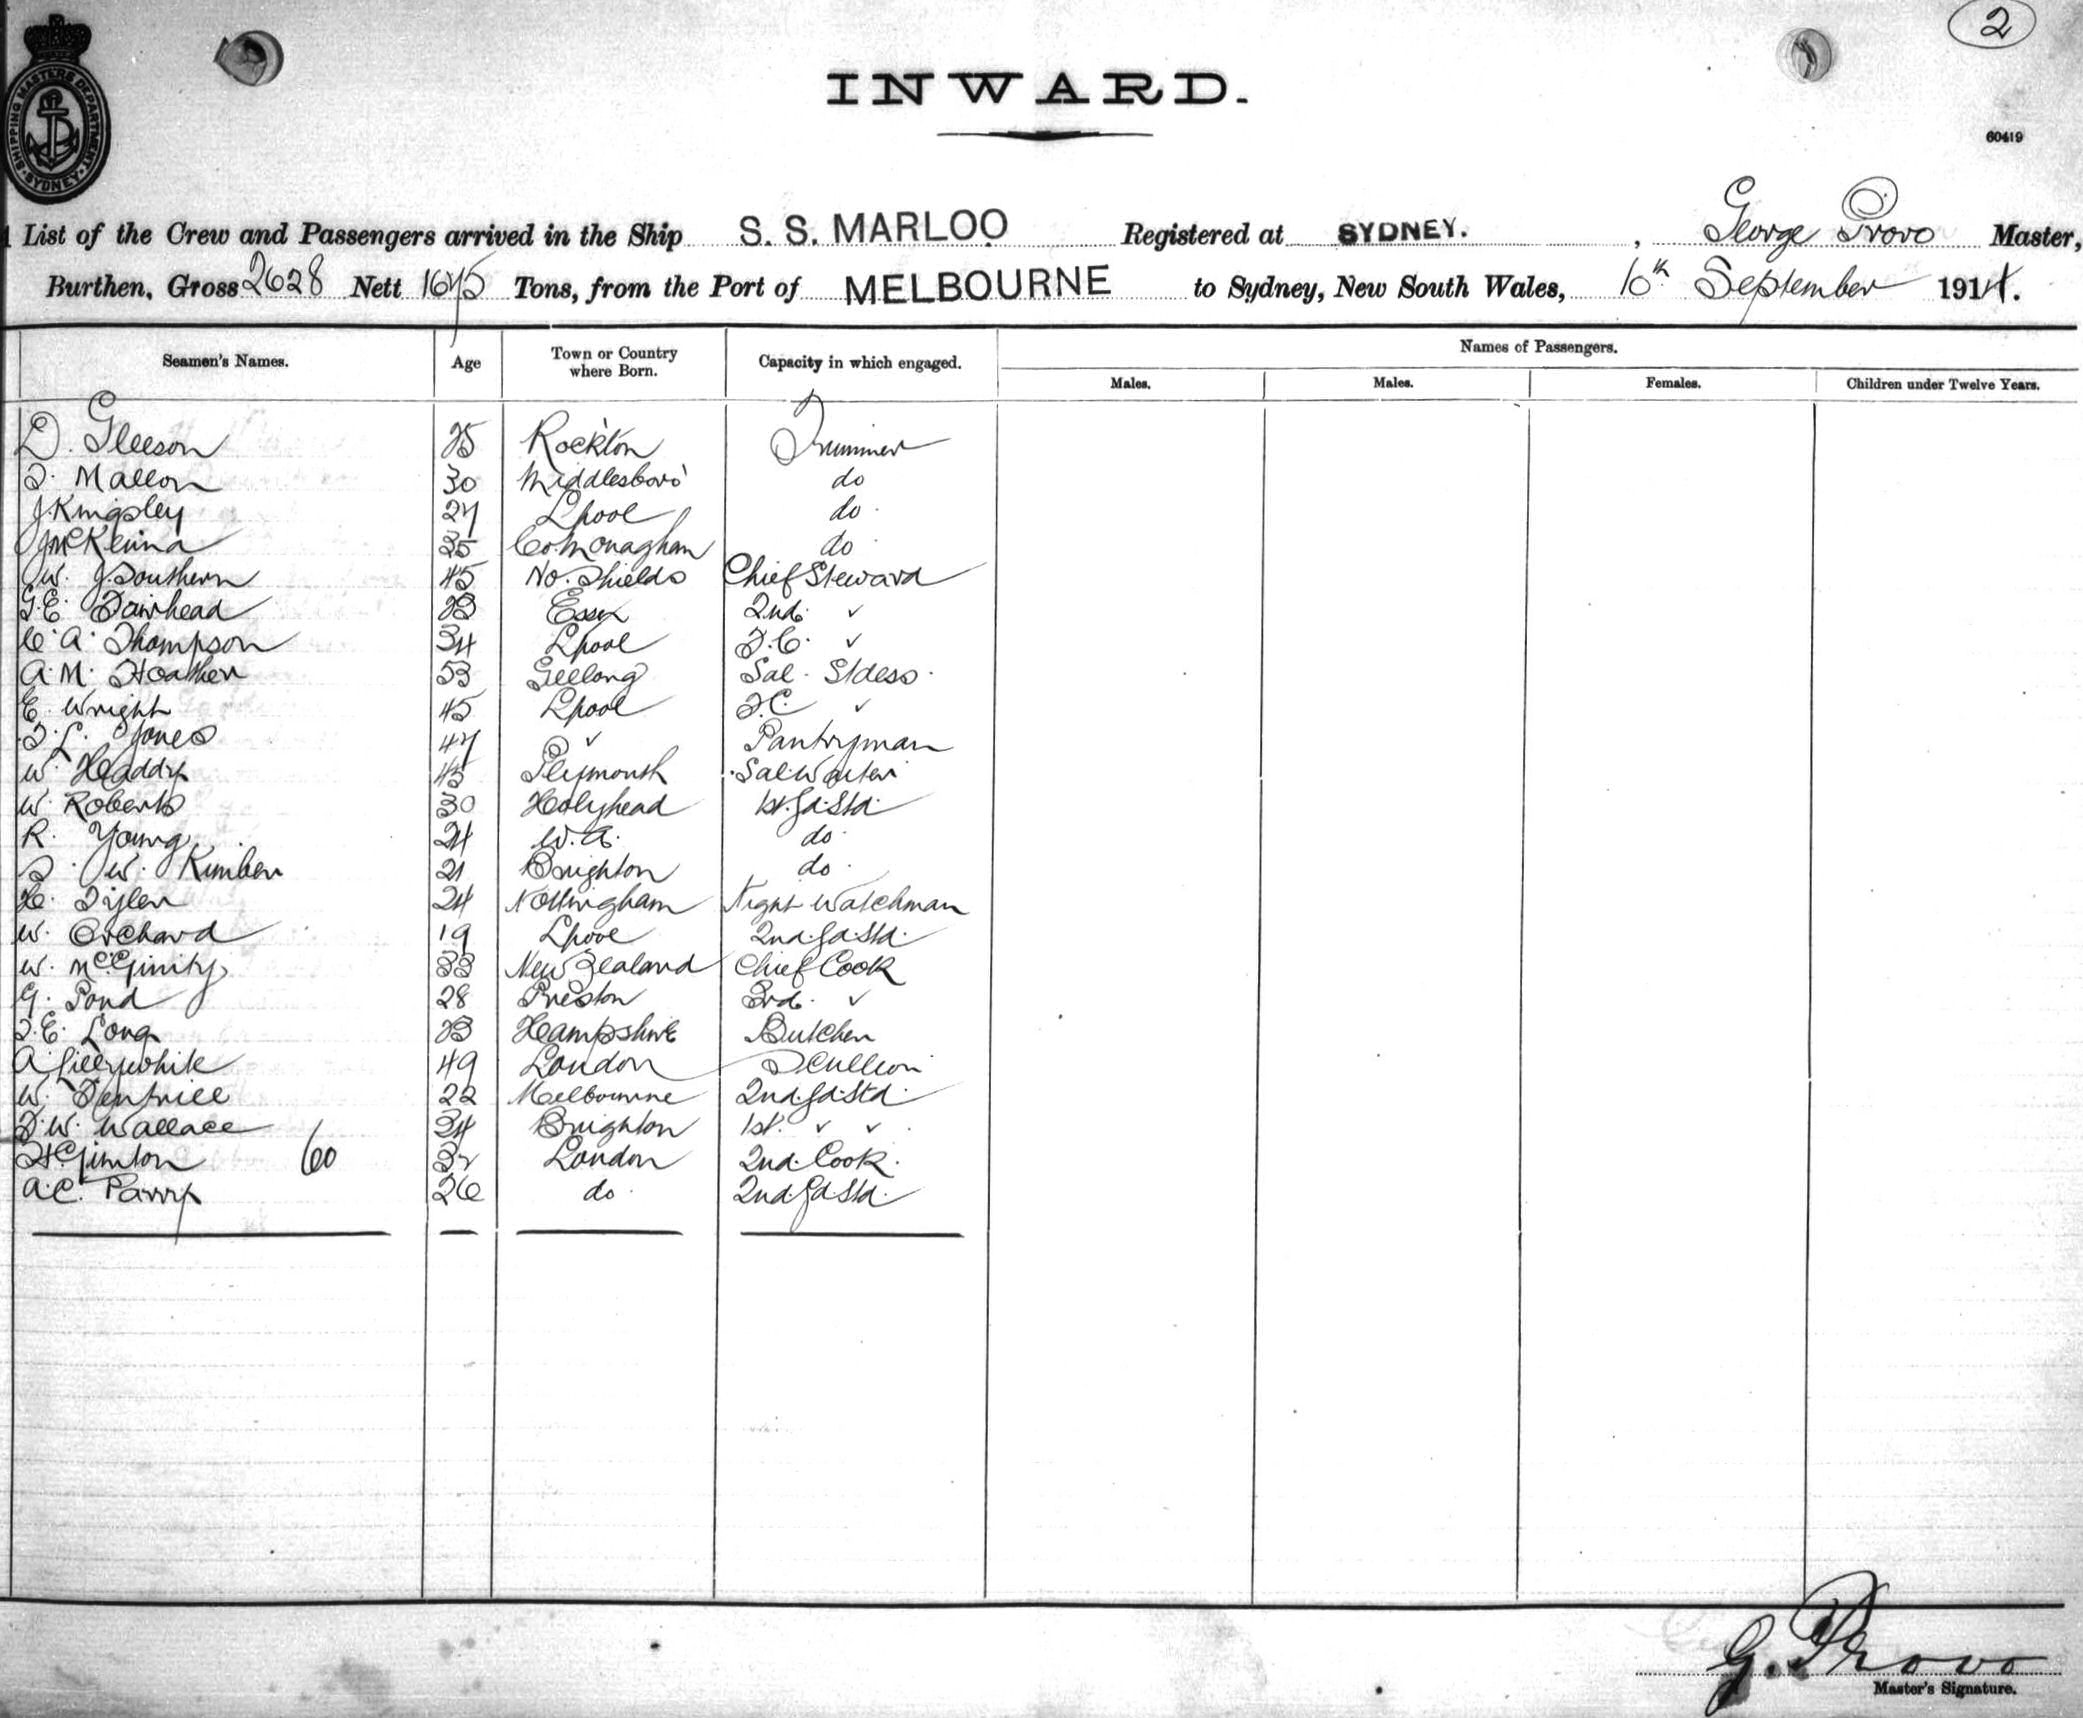 2
INWARD.
SHIPPING MASTERS DEPARTMENT · SYDNEY ·
60419
List of the Crew and Passengers arrived in the Ship S. S. MARLOO Registered at SYDNEY. , George Provo Master,
Burthen, Gross 2628 Nett 1675 Tons, from the Port of MELBOURNE to Sydney, New South Wales, 10th September 1914.
Seamen's Names. Age Town or Country where Born. Capacity in which engaged. Names of Passengers.
Males. Males. Females. Children under Twelve Years.
D. Gleeson 25 Rockton Trimmer
T. Mallon 30 Middlesboro' do
J. Kingsley 27 Lpool do
J McKenna 35 Co. Monaghan do
W. J. Southern 45 No. Shields Chief Steward
G. E. Fairhead 23 Essex 2nd. ✓
C. A. Thompson 34 Lpool F.C. ✓
A. M. Hoather 53 Geelong Sal. Stdess.
E. Wright 45 Lpool F.C. ✓
T. L. Jones 47 ✓ Pantryman
W. Haddy 45 Plymouth Sal. Waiter
W. Roberts 30 Holyhead 1st. Sa. Std.
R. Young 24 W. A. do.
W. Kimber 21 Brighton do.
H. Tyler 24 Nottingham Night Watchman
W. Orchard 19 Lpool 2nd. Sa. Std.
W. McGinity 33 New Zealand Chief Cook
G. Pond 28 Preston 3rd. ✓
T. E. Long 23 Hampshire Butcher
A. Lillywhite 49 London Scullion
W. Dentrice 22 Melbourne 2nd. Sa. Std.
F. W. Wallace 34 Brighton 1st. ✓ ✓
H. Gimton 60 32 London 2nd. Cook.
A. C. Parry 26 do. 2nd. Sa Std.
G. Provo
Master's Signature.